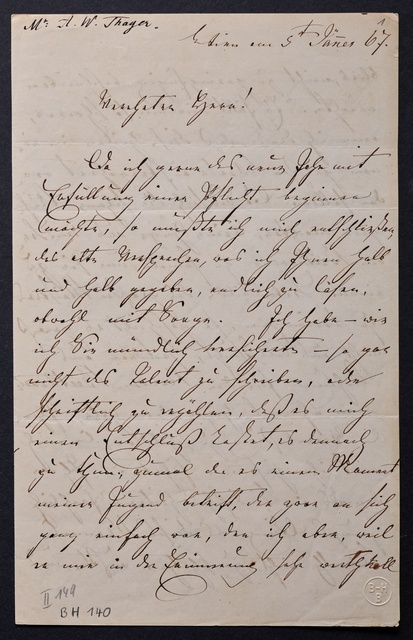 Mr. A. W. Thayer.
1
Wien am 5t Jänner 67.
Verehrter Herr!
Da ich gerne das neue Jahr mit
Erfüllung einer Pflicht beginnen
möchte, so mußte ich mich entschließen
das alte Versprechen, was ich Ihnen halb
und halb gegeben, endlich zu lösen,
obwohl mit Sorge. Ich habe – wie
ich Sie mündlich versicherte – so gar
nicht das Talent zu schreiben, oder
schriftlich zu erzählen, daß es mich
einen Entschluß kostet, es dennoch
zu thun, zumal da es einen Moment
meiner Jugend betrifft, der zwar an sich
ganz einfach war, den ich aber, weil
er mir in der Erinnerung sehr werthvoll
II 149
BH 140